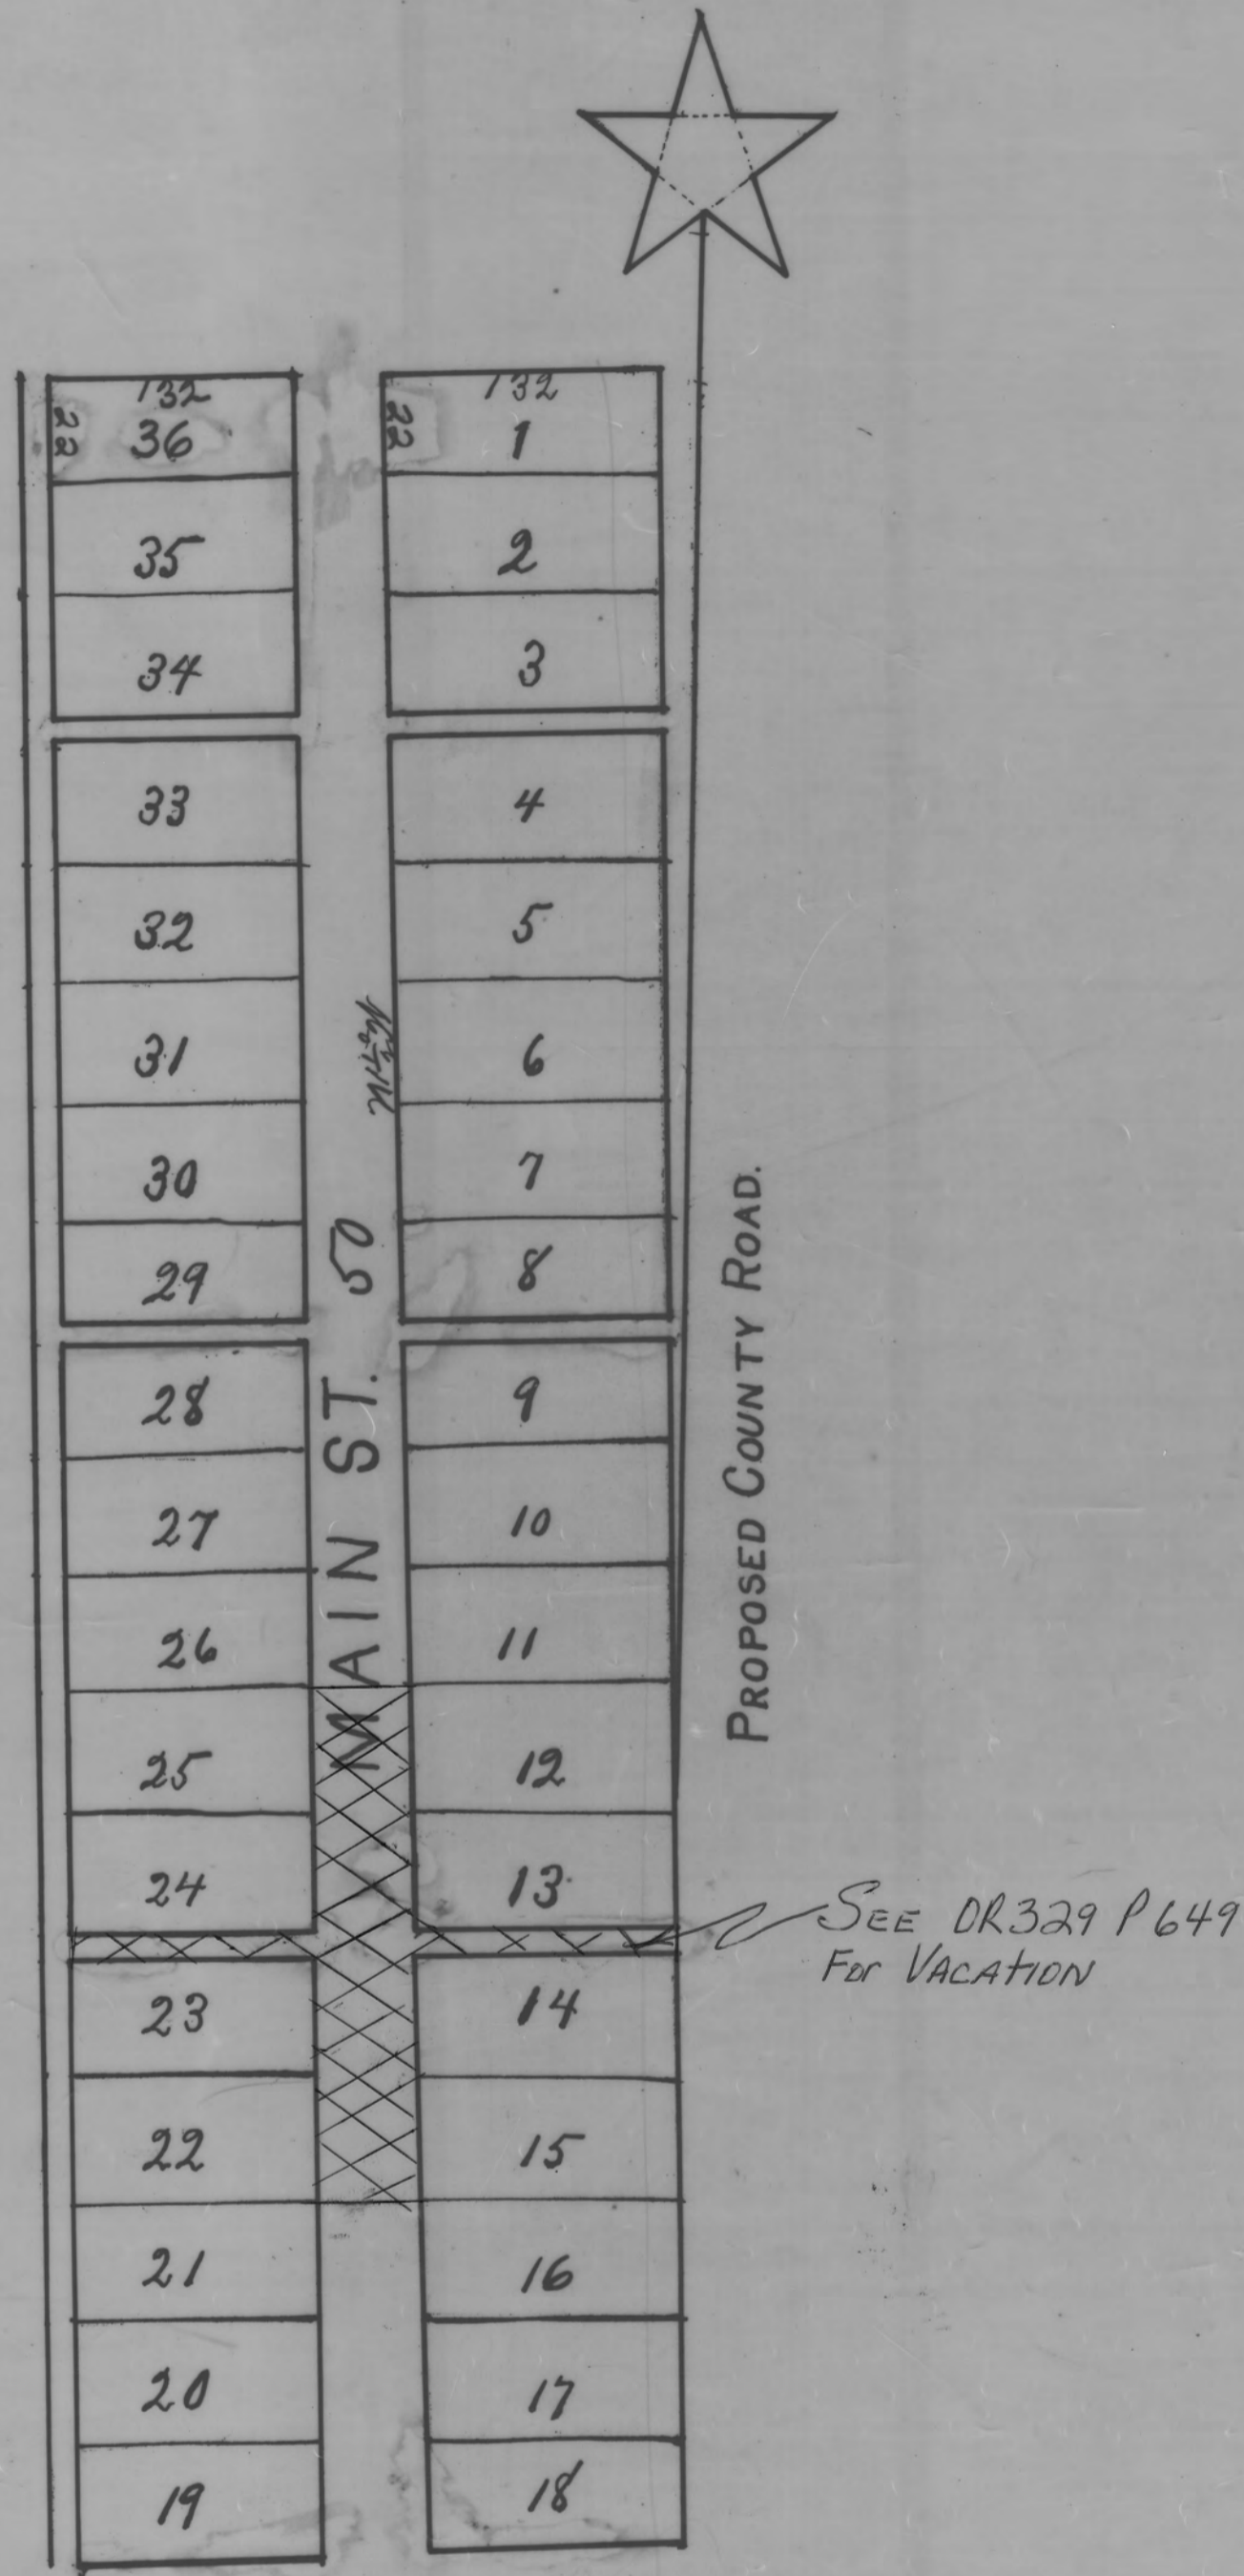 132
22
36
35
34
33
32
31
30
29
28
27
26
25
24
23
22
21
20
19
MAIN ST. 50
132
22
1
2
3
4
5
6
7
8
9
10
11
12
13
14
15
16
17
18
PROPOSED COUNTY ROAD.
SEE DR329 P649
For VACATION